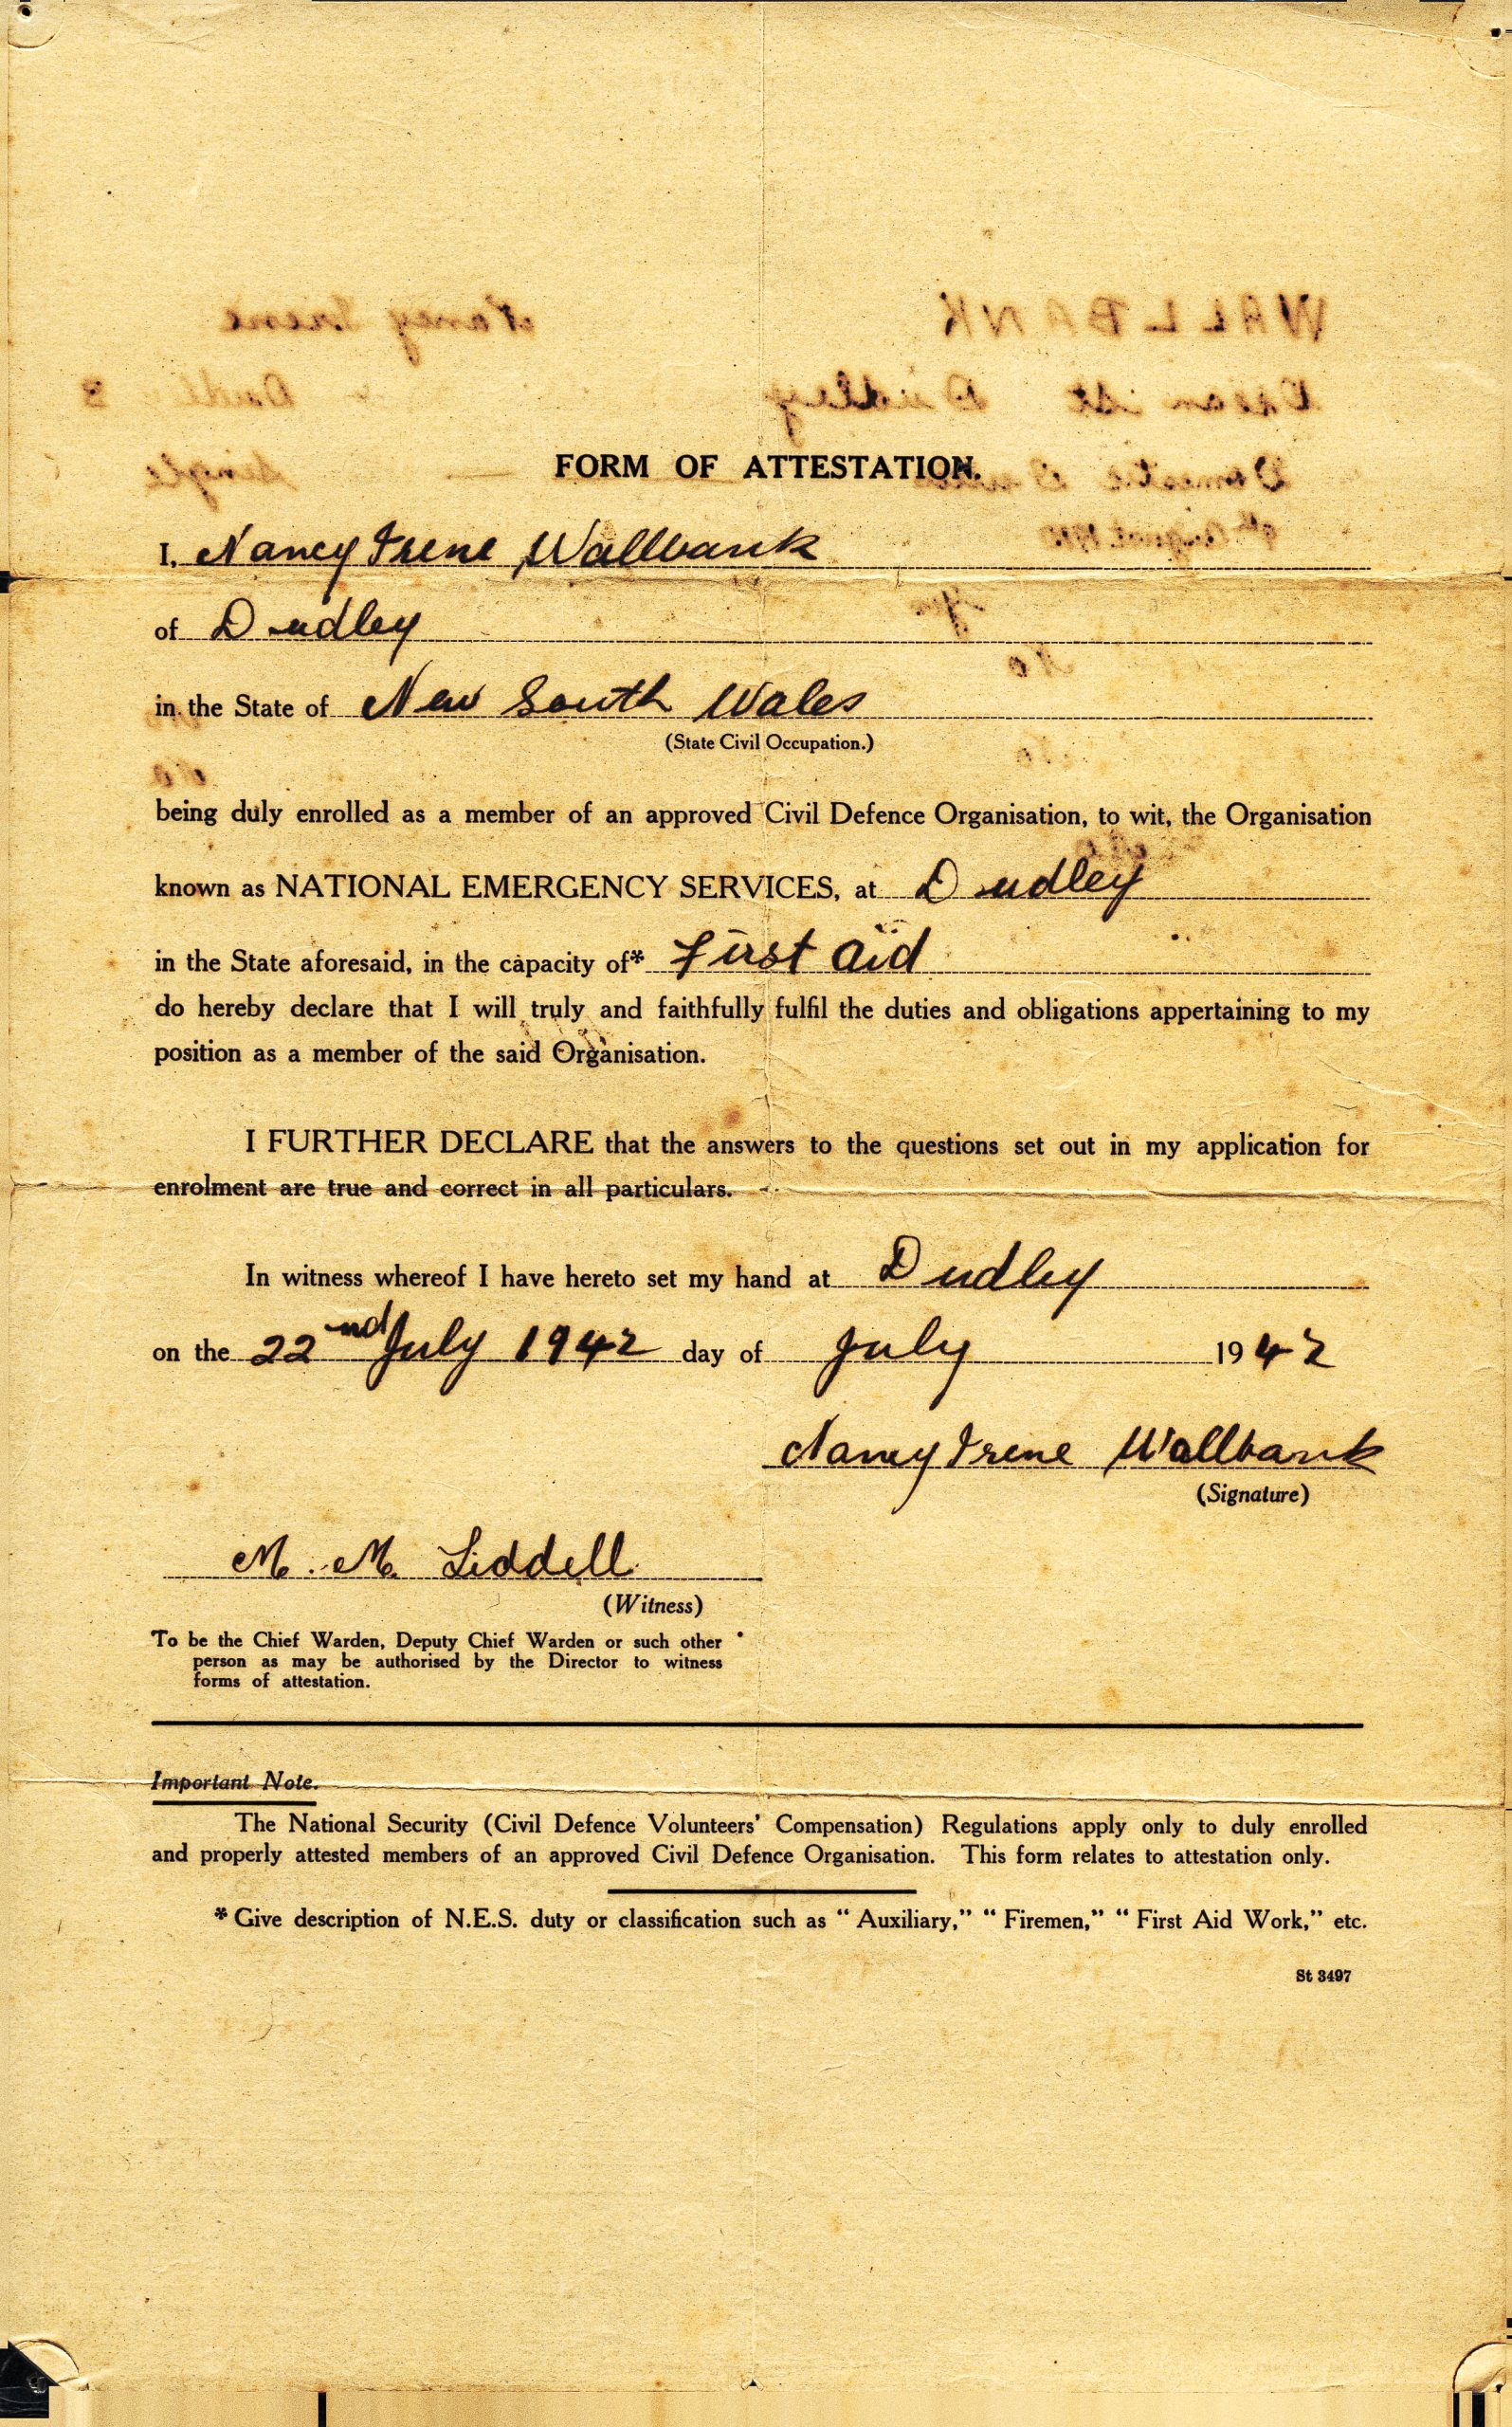 WALLBANK Nancy Irene
Ocean St Dudley
Domestic Single
FORM OF ATTESTATION.
I, Nancy Irene Wallbank
of Dudley
in the State of New South Wales
(State Civil Occupation.)
being duly enrolled as a member of an approved Civil Defence Organisation, to wit, the Organisation
known as NATIONAL EMERGENCY SERVICES, at Dudley
in the State aforesaid, in the capacity of* First Aid
do hereby declare that I will truly and faithfully fulfil the duties and obligations appertaining to my
position as a member of the said Organisation.
I FURTHER DECLARE that the answers to the questions set out in my application for
enrolment are true and correct in all particulars.
In witness whereof I have hereto set my hand at Dudley
on the 22nd July 1942 day of July 1942
Nancy Irene Wallbank
(Signature)
M. M. Liddell
(Witness)
To be the Chief Warden, Deputy Chief Warden or such other
person as may be authorised by the Director to witness
forms of attestation.
Important Note.
The National Security (Civil Defence Volunteers' Compensation) Regulations apply only to duly enrolled
and properly attested members of an approved Civil Defence Organisation. This form relates to attestation only.
* Give description of N.E.S. duty or classification such as “Auxiliary,” “Firemen,” “First Aid Work,” etc.
St 3497